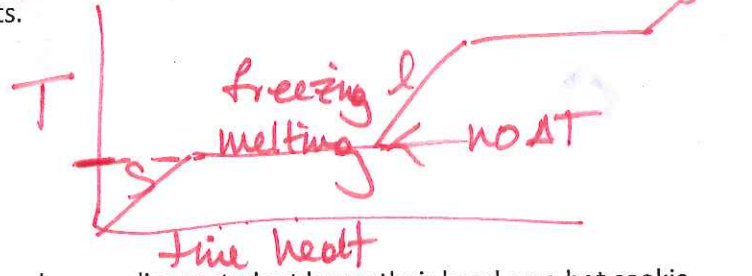 ts.
T
freezing l
melting
no ΔT
S
time heat